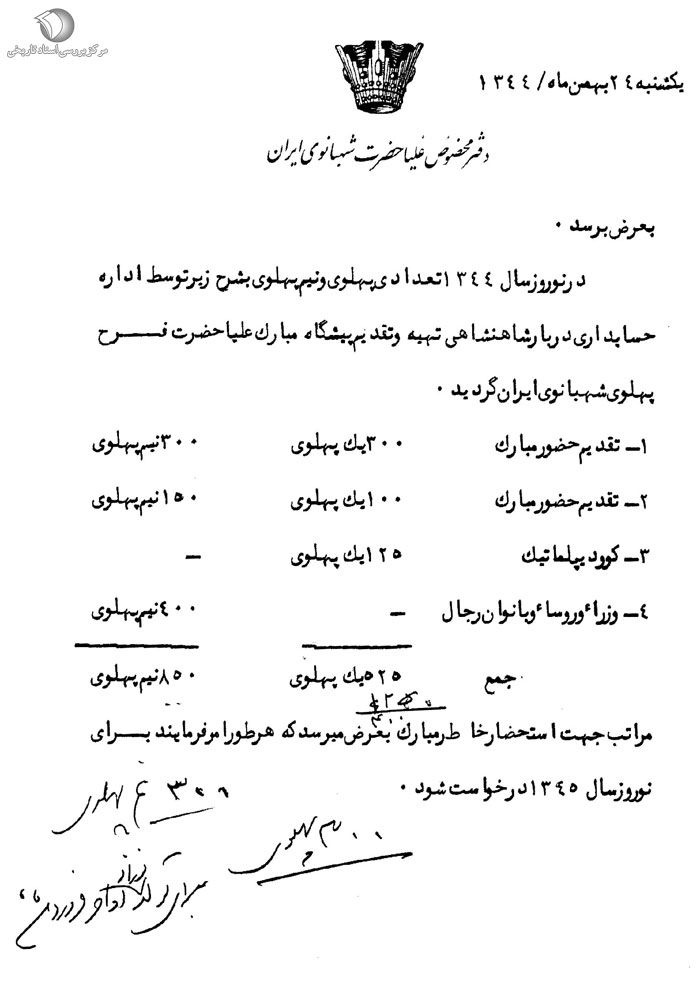 مرکز بررسی اسناد تاریخی
یکشنبه ۲۴ بهمن ماه / ۱۳۴۴
دفتر مخصوص علیاحضرت شهبانوی ایران
بعرض برسد .
در نوروز سال ۱۳۴۴ تعدادی پهلوی و نیم پهلوی بشرح زیر توسط اداره
حسابداری دربار شاهنشاهی تهیه و تقدیم پیشگاه مبارک علیاحضرت فرح
پهلوی شهبانوی ایران گردید .
۱ـ تقدیم حضور مبارک ۳۰۰ یک پهلوی ۳۰۰ نیم پهلوی
۲ـ تقدیم حضور مبارک ۱۰۰ یک پهلوی ۱۵۰ نیم پهلوی
۳ـ کوردیپلماتیک ۱۲۵ یک پهلوی ـ
۴ـ وزراء و روساء و بانوان رجال ـ ۴۰۰ نیم پهلوی
جمع ۵۲۵ یک پهلوی ۸۵۰ نیم پهلوی
مراتب جهت استحضار خاطر مبارک بعرض میرسد که هر طور امر فرمایند برای
نوروز سال ۱۳۴۵ درخواست شود .
۳۰۰ نیم پهلوی
پهلوی
برای